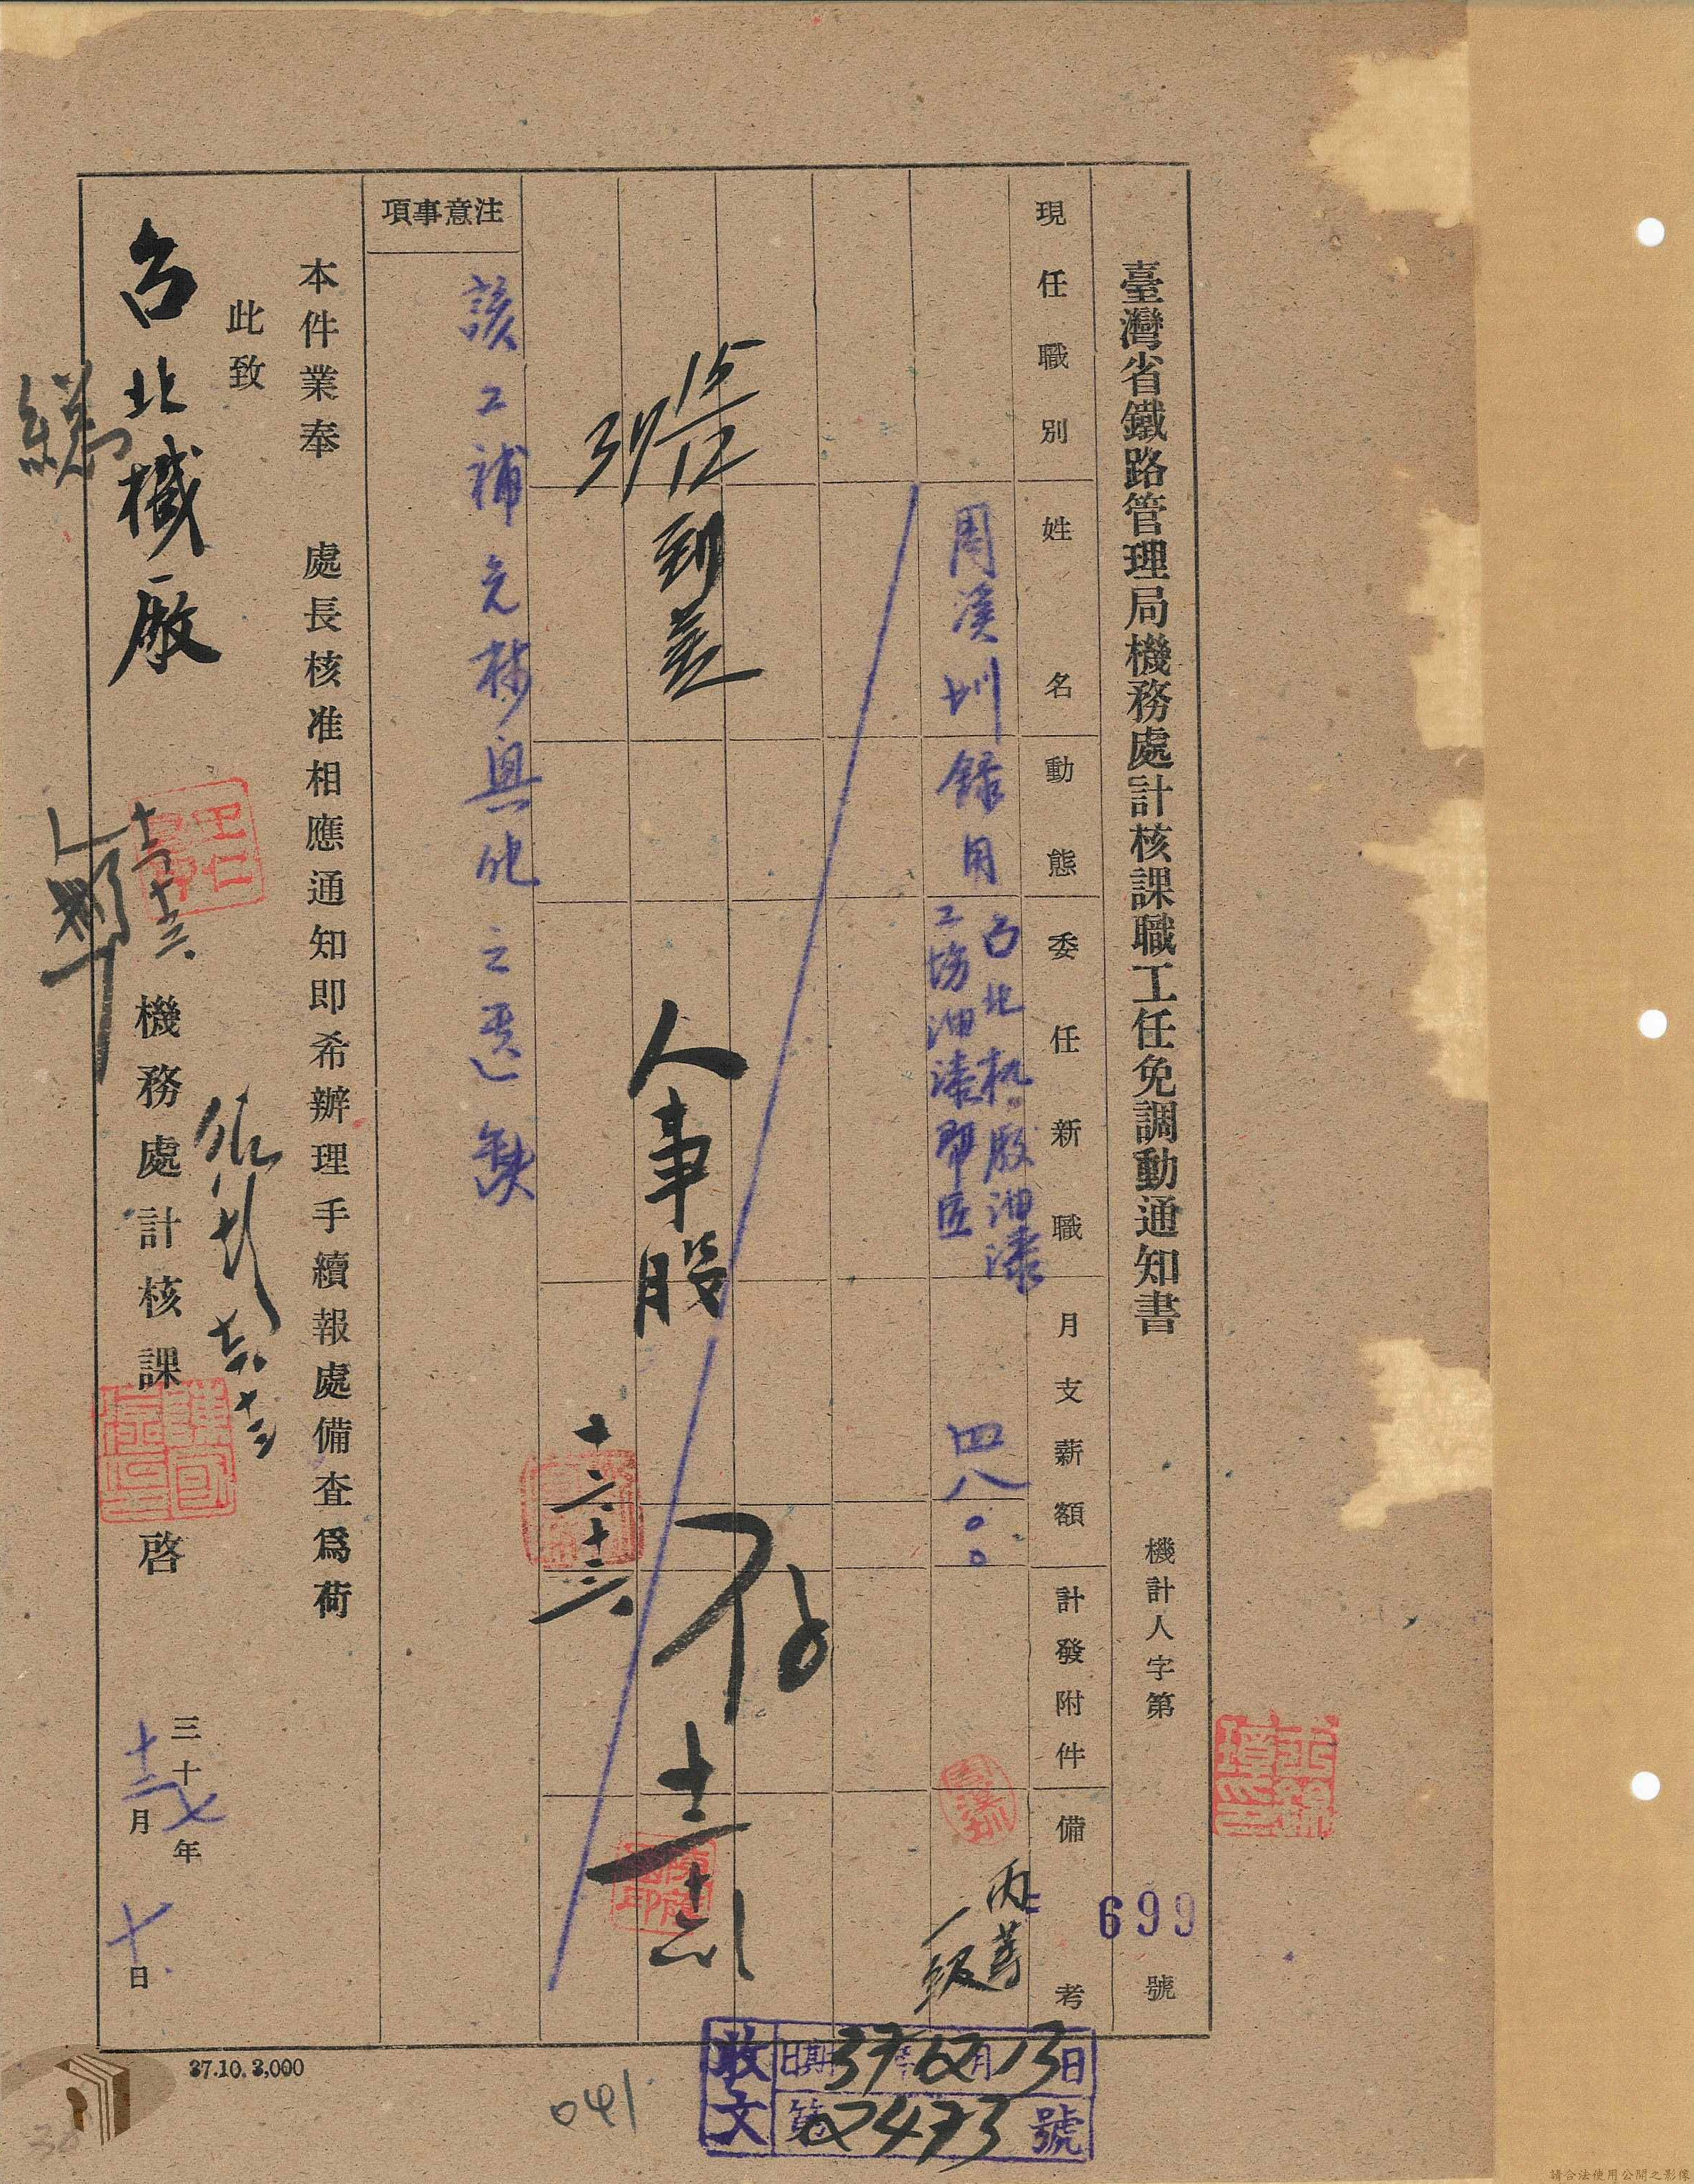 臺灣省鐵路管理局機務處計核課職工任免調動通知書
機計人字第 699 號
現任職別
姓名
動態
委任新職
月支薪額
計發附件
備考
周溪圳
錄用
台北机廠油漆
工場油漆帮匠
四八〇〇
丙等
一級
37 15/12 到差
人事股
存
十二、十三
注意事項
該工補充林興化之遺缺
本件業奉 處長核准相應通知即希辦理手續報處備査爲荷
此致
台北機廠
機務處計核課 啓
三十七年
十二月十日
37.10.3,000
041
收文
日期37年12月13日
第02473號
請合法使用公開之影像